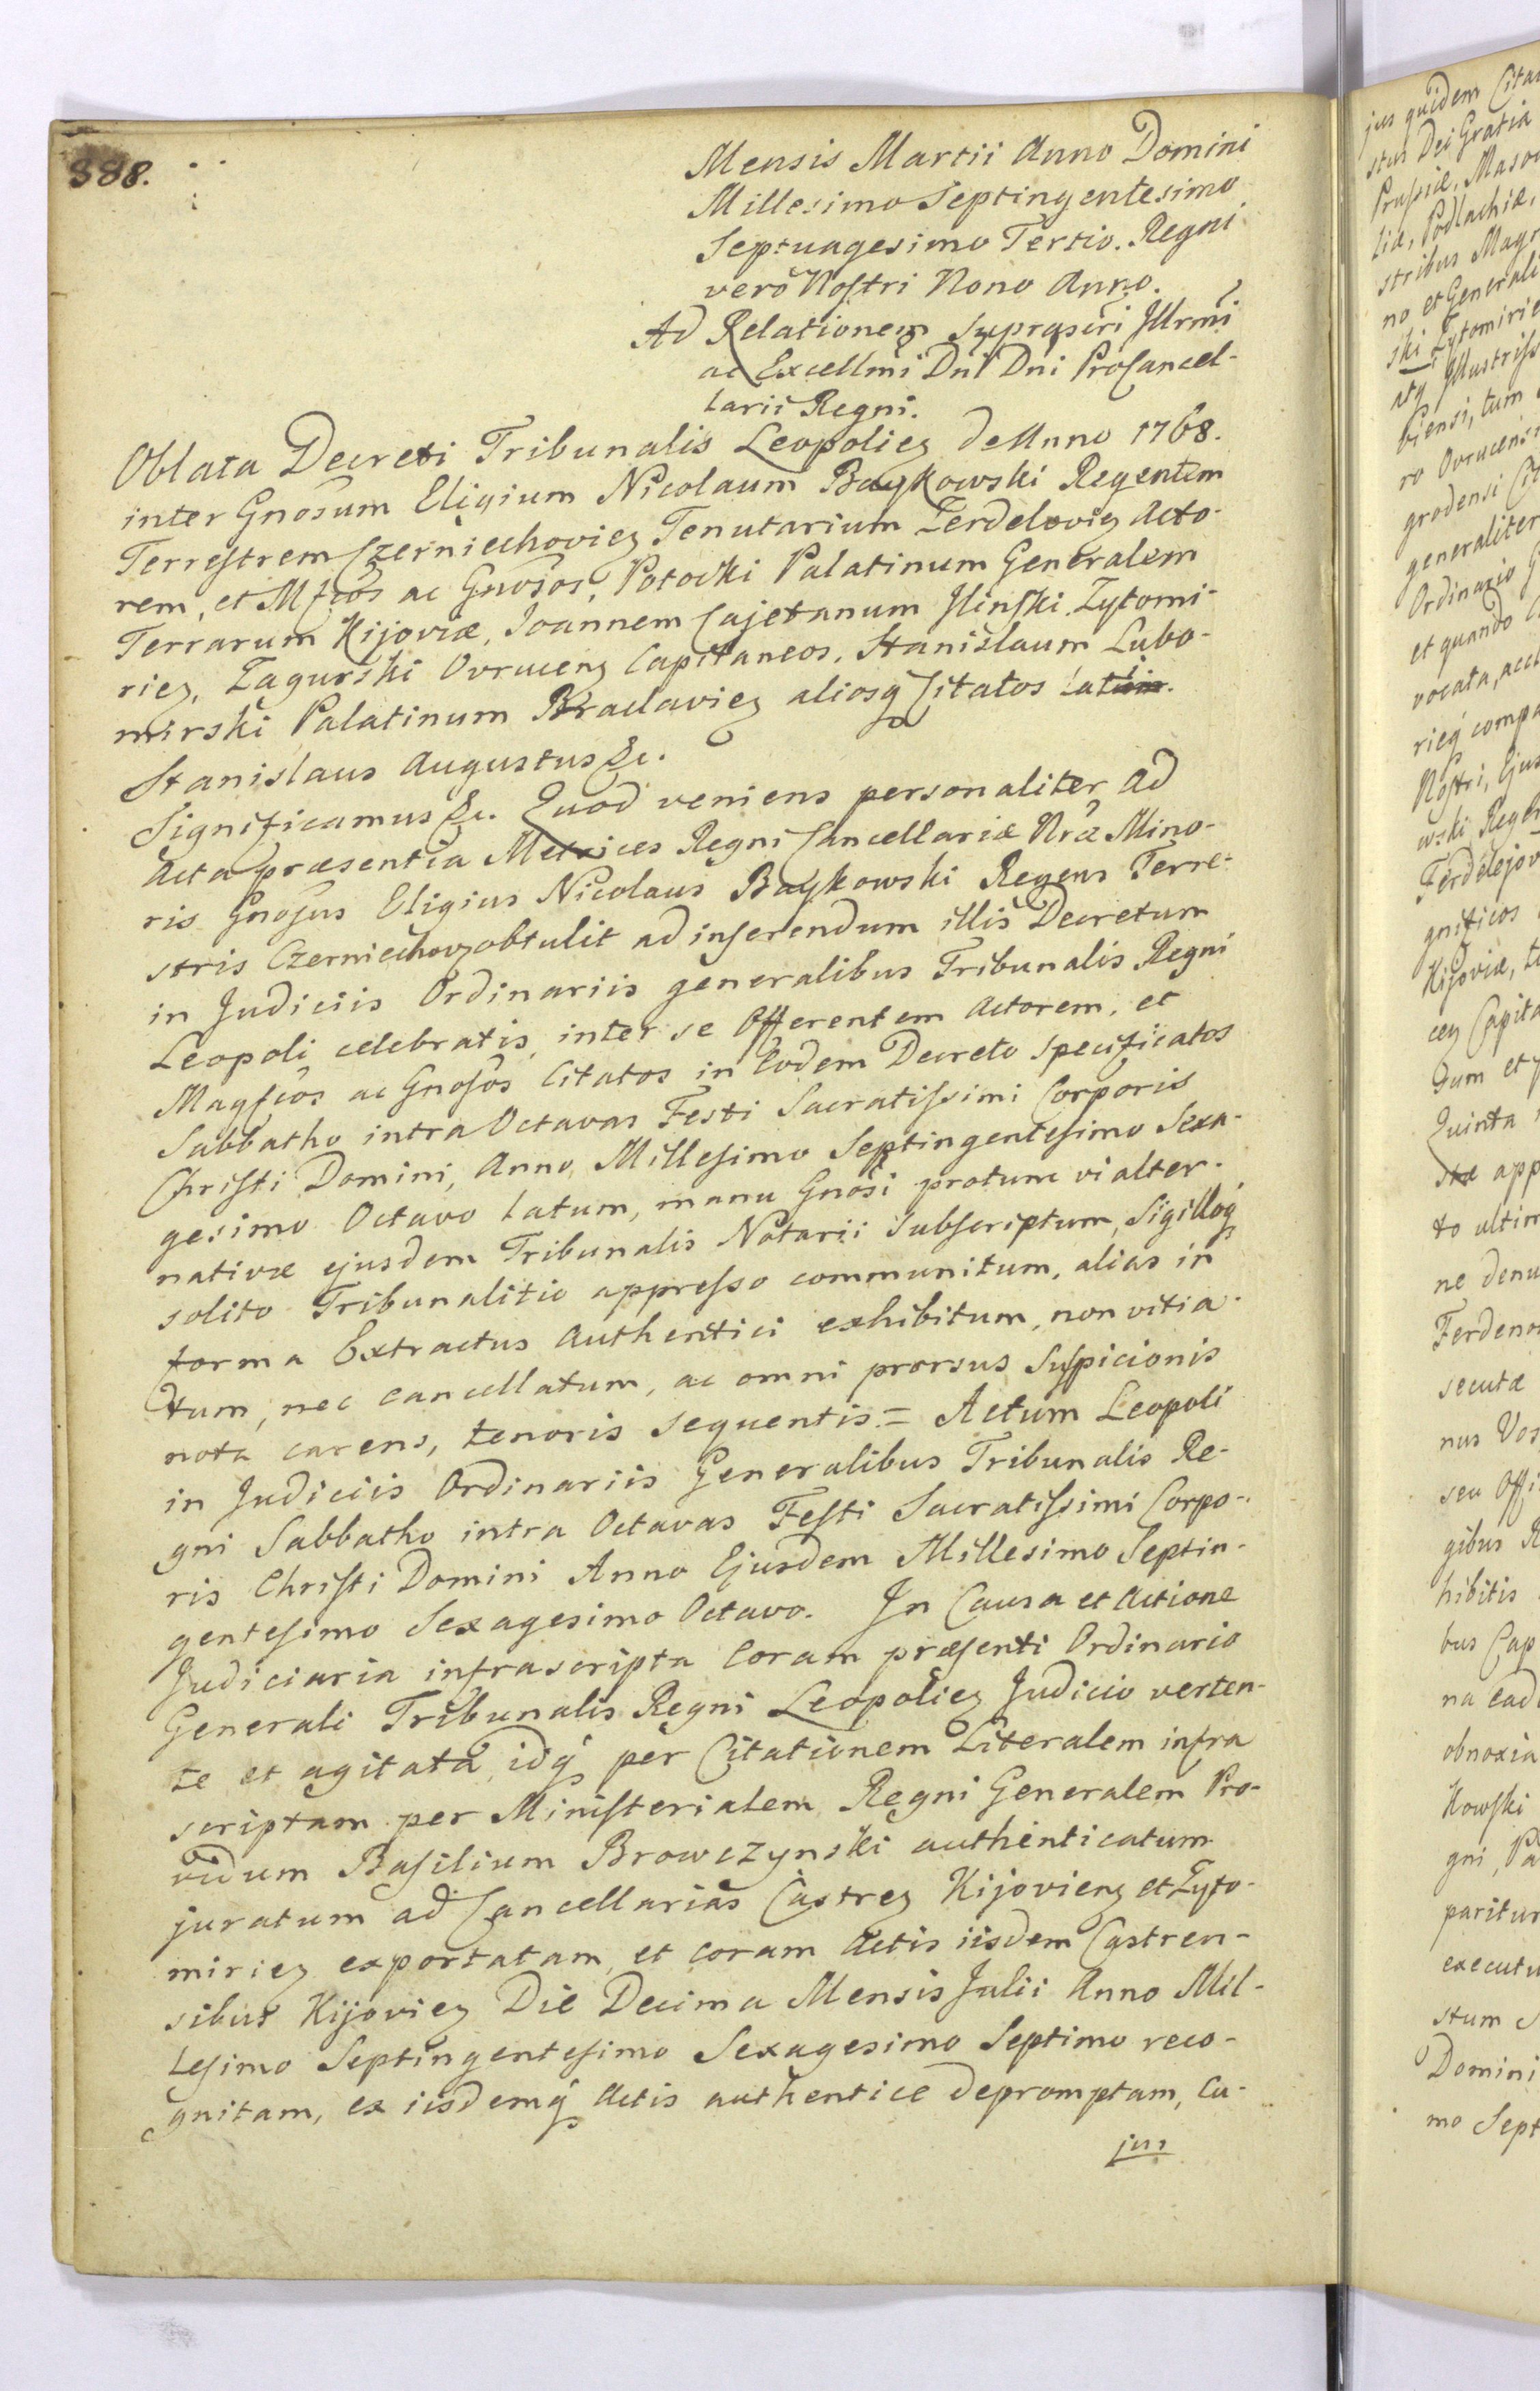 388.
Mensis Martii Anno Domini
Millesimo Septingentesimo
Septuagesimo Tertio. Regni
verò Nostri Nono Anno.
Ad Relationem suprascri Jllrmi
ac Excellmi Dni Dni ProCancel-
larii Regni.
Oblata Decreti Tribunalis Leopolież de Anno 1768.
inter Gnosum Eligium Nicolaum Baykowski Regentem
Terrestrem Czerniechovież Tenutarium Ferdelovież Acto-
rem, et Mfcos ac Gnosos, Potocki Palatinum Generalem
Terrarum Kijoviæ, Joannem Cajetanum Jlinski Zytomi-
rież, Zagurski Ovruceż Capitaneos, Stanislaum Lubo-
mirski Palatinum Braclavież aliosq Citatos latum.
Stanislaus Augustus &c.
Significamus &c. Quod veniens personaliter ad
Acta præsentia Metrices Regni Cancellariæ Nræ Mino-
ris Gnosus Eligius Nicolaus Baykowski Regens Terre-
stris Czerniechovż obtulit ad inserendum illis Decretum
in Judiciis Ordinariis generalibus Tribunalis Regni
Leopoli celebratis, inter se Offerentem Actorem, et
Magfcos ac Gnosos Citatos in Eodem Decreto specificatos
Sabbatho intra Octavas Festi Sacratissimi Corporis
Christi Domini, Anno Millesimo Septingentesimo Sexa-
gesimo Octavo latum, manu Gnosi protunc vi alter-
nativæ ejusdem Tribunalis Notarii subscriptum, Sigilloq
solito Tribunalitio appresso communitum, alias in
forma Extractus Authentici exhibitum, non vitia-
tum, nec cancellatum, ac omni prorsus suspicionis
nota carens, tenoris sequentis = Actum Leopoli
in Judiciis Ordinariis Generalibus Tribunalis Re-
gni Sabbatho intra Octavas Festi Sacratissimi Corpo-
ris Christi Domini Anno Ejusdem Millesimo Septin-
gentesimo Sexagesimo Octavo. Jn Causa et Actione
Judiciaria infrascripta Coram præsenti Ordinario
Generali Tribunalis Regni Leopolież Judicio verten-
te et agitatâ, idq per Citationem Literalem infra
scriptam per Ministerialem Regni Generalem Pro-
vidum Basilium Browczynski authenticatum
juratum ad Cancellarias Castreż Kijovienż et Zyto-
mirież exportatam, et coram Actis iisdem Castren-
sibus Kijovież Die Decima Mensis Julii Anno Mil-
lesimo Septingentesimo Sexagesimo Septimo reco-
gnitam, ex iisdemq Actis authentice depromptam, Cu-
jus
jus quidem Cita
stus Dei Gratia
Prussiæ, Maso
liæ, Podlachiæ,
stribus Mag
no et Generali
ski Zytomirie
Jllustriss
biensi, tum
ro Ovrucensi
grodensi Ci
generaliter
Ordinario G
et quando
vocata, acc
rieq compa
Nostri, Ejus
wski Regen
Ferdelejov
gnificos
Kijoviæ,
ceż Capita
dum et
Quinta
stæ app
to ultim
ne denu
Ferdeno
secutæ
nus Vos
seu Offi
gibus R
hibitis
bus Cap
na ead
obnoxia
Kowski
gni, Pa
paritur
executu
stum
Domini
mo Sept